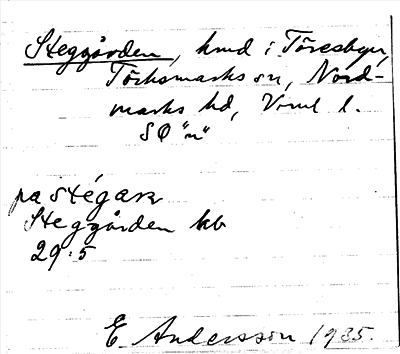 Steggården, hmd i Töresbyn,
Töcksmarks sn, Nord-
marks hd, Vrml l.
SO "n"
på stégaɳ
Steggården kb
29:5
E. Andersson 1935.